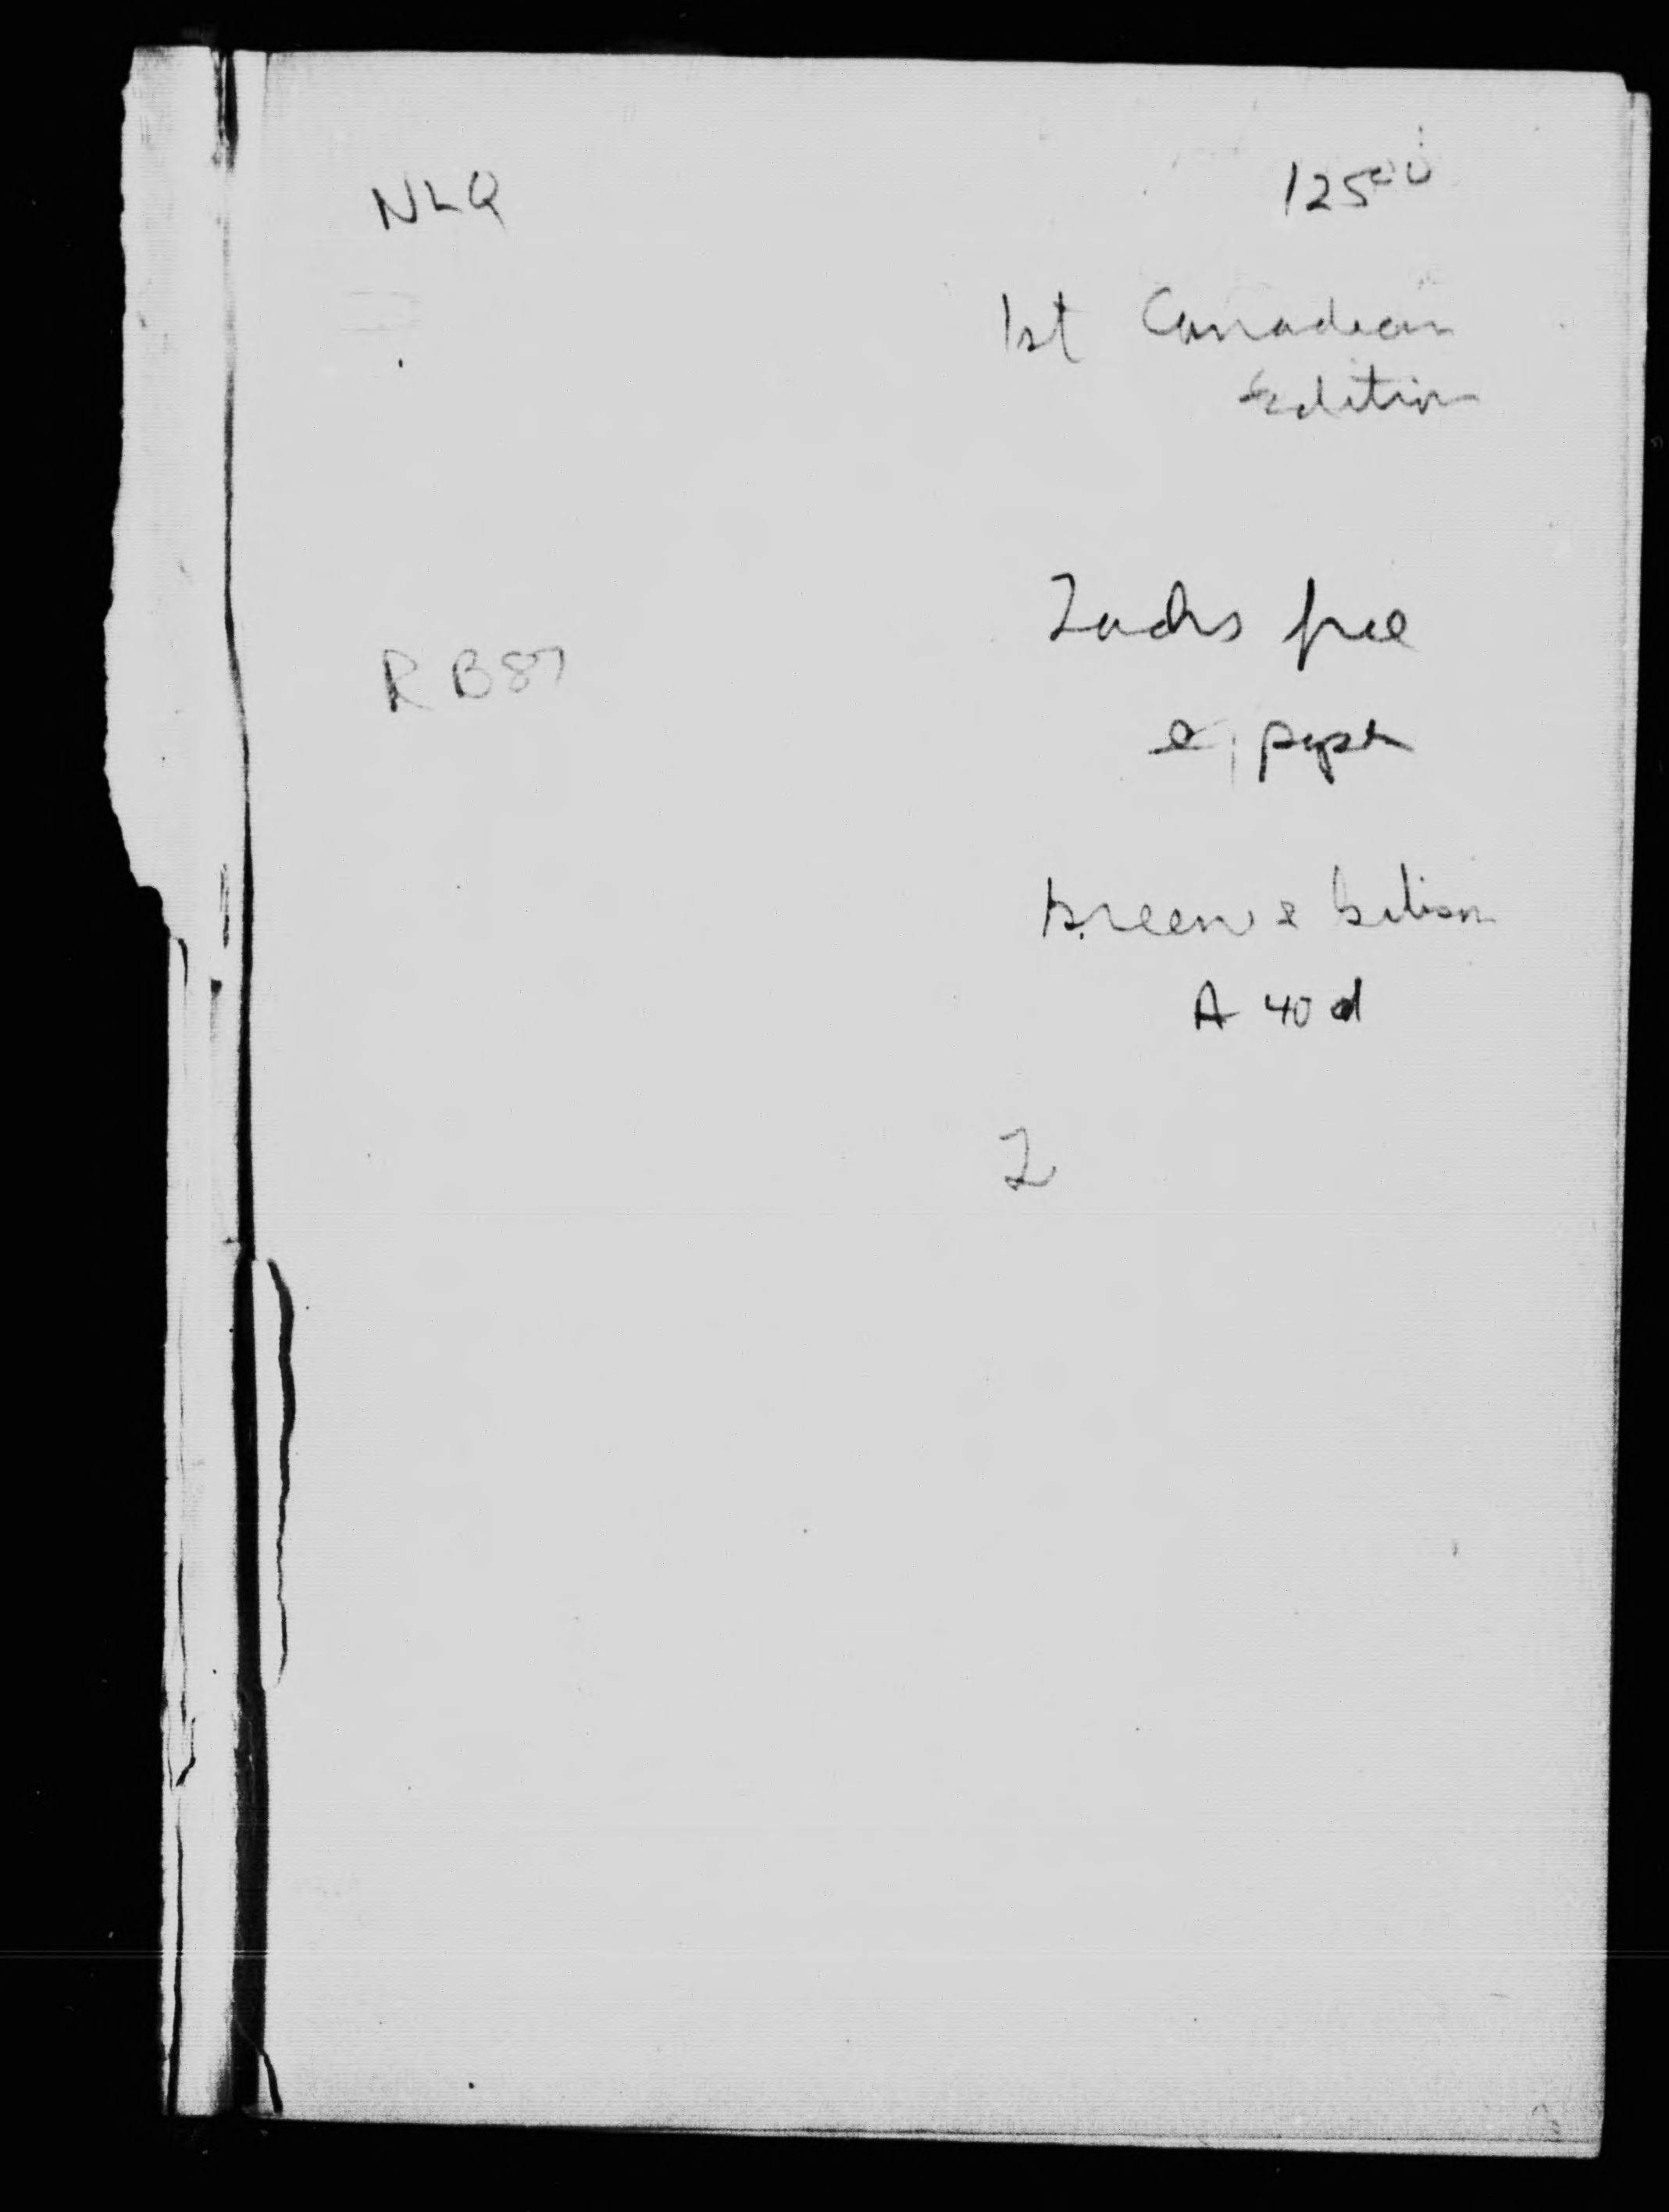 NLQ
125 00
1st Canadian
Edition
Lacks free
e, paper
Green & Gibson
A 40 d
RB87
2